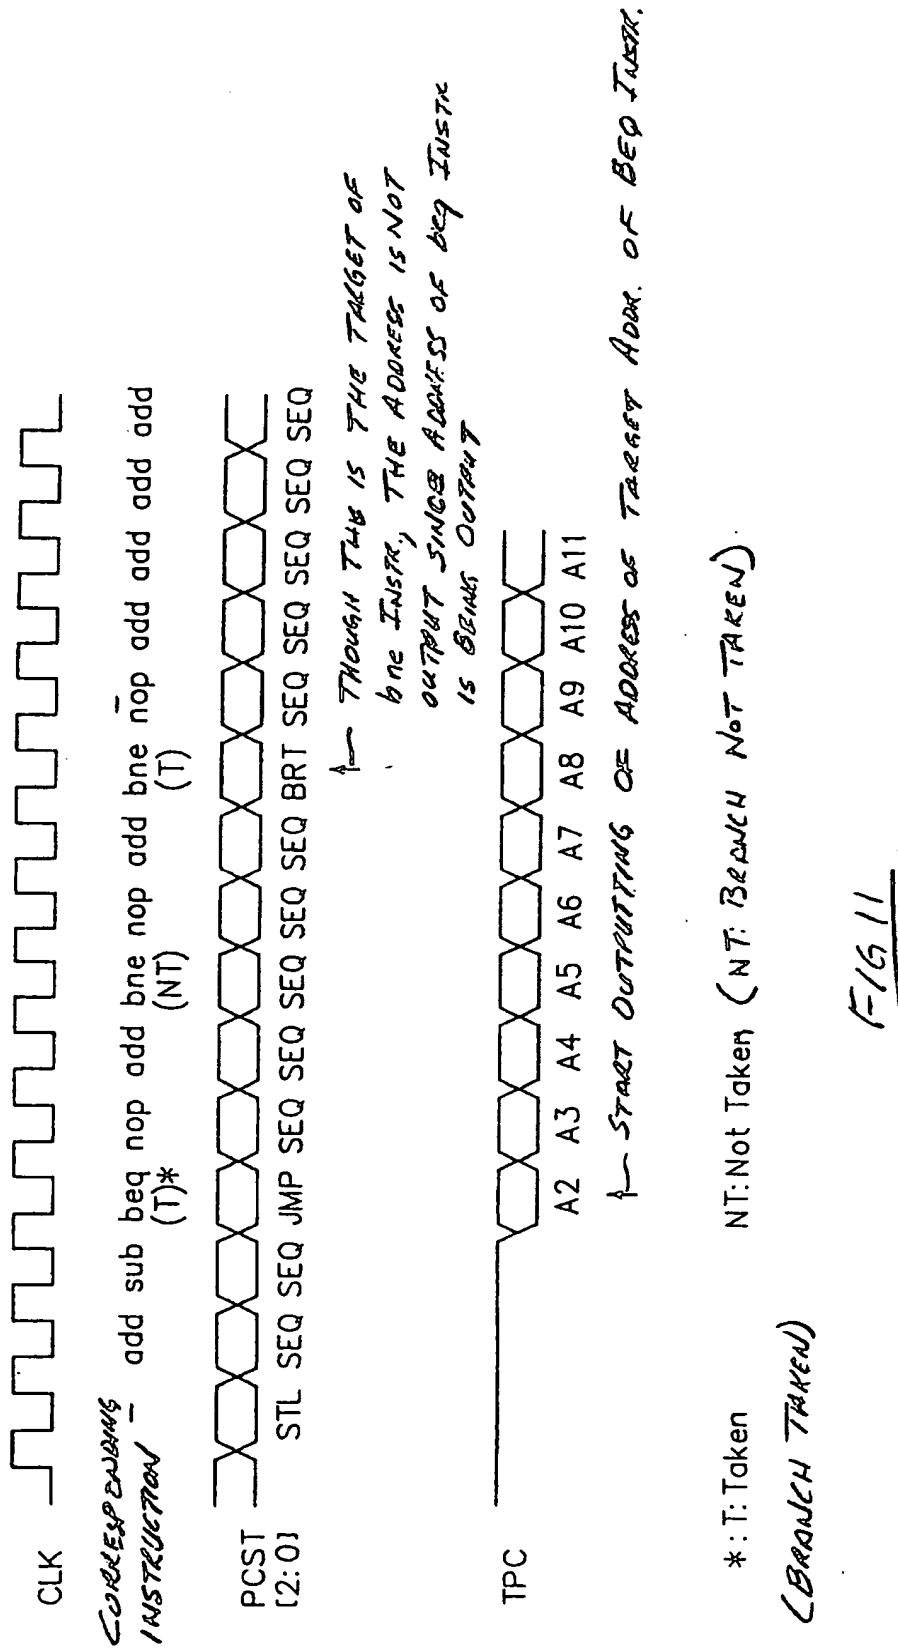 CLK
CORRESPENDING
INSTRUCTION — add sub beq nop add bne nop add bne nop add add add add
(T)* (NT) (T)
PCST
[2:0]
STL SEQ SEQ JMP SEQ SEQ SEQ SEQ SEQ BRT SEQ SEQ SEQ SEQ SEQ
THOUGH THIS IS THE TARGET OF
bne INSTR., THE ADDRESS IS NOT
OUTPUT SINCE ADDRESS OF beq INSTR
IS BEING OUTPUT
TPC
A2 A3 A4 A5 A6 A7 A8 A9 A10 A11
START OUTPUTTING OF ADDRESS OF TARGET ADDR. OF BEQ INSTR.
*: T: Taken NT: Not Taken (NT: BRANCH NOT TAKEN)
(BRANCH TAKEN)
FIG 11